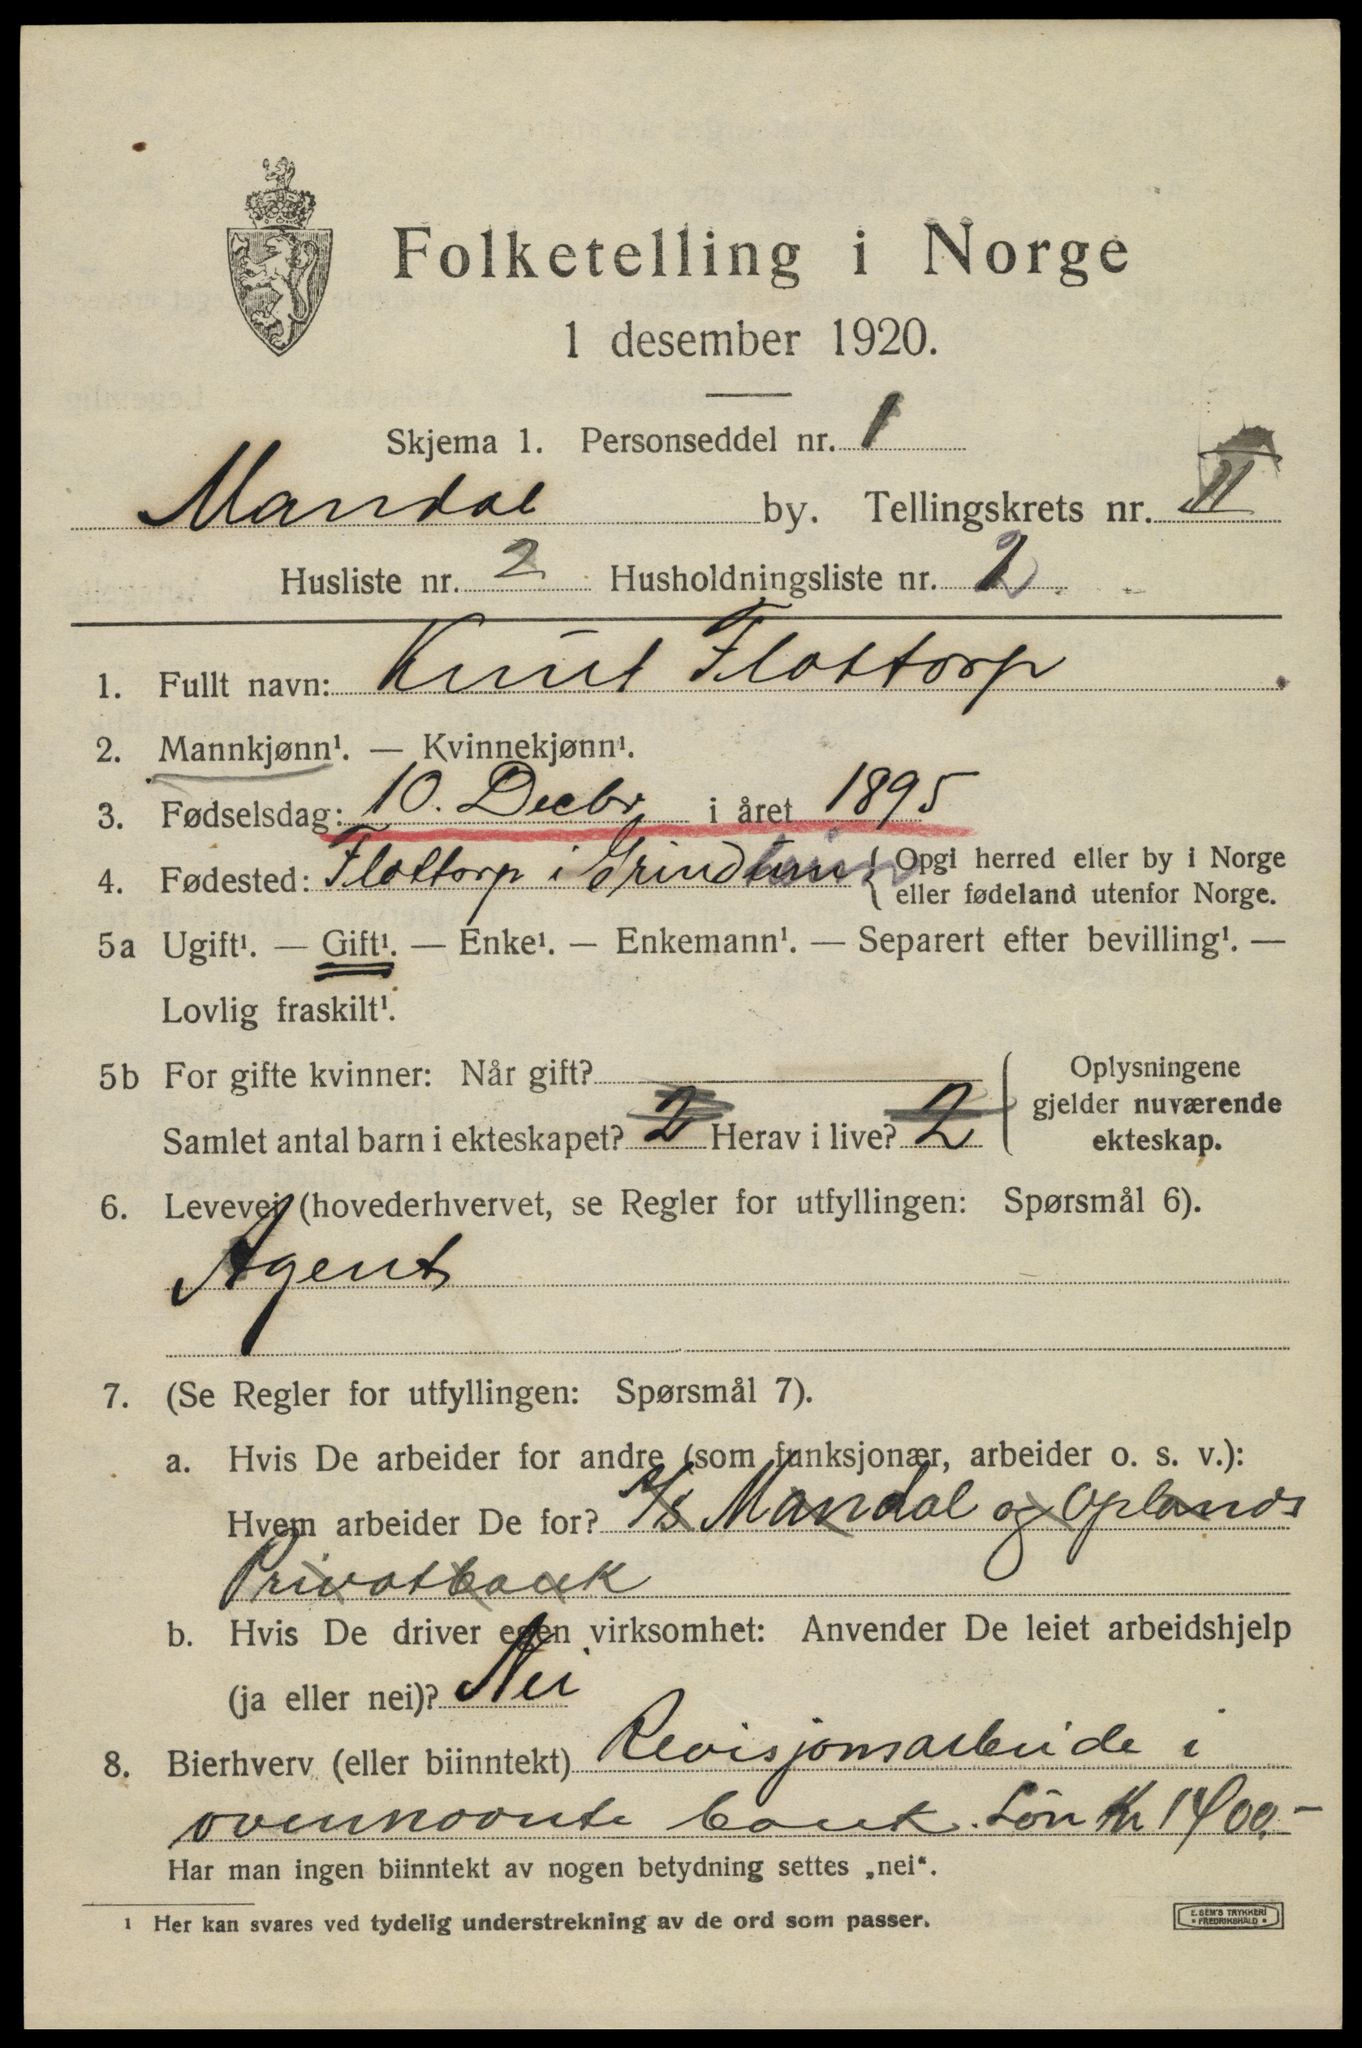 Folketelling i Norge
1 desember 1920.
Skjema 1. Personseddel nr. 1
Mandal by. Tellingskrets nr. II
Husliste nr. 2 Husholdningsliste nr. 2
1. Fullt navn: Knut Flottorp
2. Mannkjønn¹. — Kvinnekjønn¹.
3. Fødselsdag: 10. Decbr. i året 1895
4. Fødested: Flottorp i Grindum { Opgi herred eller by i Norge
eller fødeland utenfor Norge.
5a Ugift¹. — Gift¹. — Enke¹. — Enkemann¹. — Separert efter bevilling¹. —
Lovlig fraskilt¹.
5b For gifte kvinner: Når gift?
Samlet antal barn i ekteskapet? 2 Herav i live? 2
Oplysningene
gjelder nuværende
ekteskap.
6. Levevei (hovederhvervet, se Regler for utfyllingen: Spørsmål 6).
Agent
7. (Se Regler for utfyllingen: Spørsmål 7).
a. Hvis De arbeider for andre (som funksjonær, arbeider o. s. v.):
Hvem arbeider De for? A/S Mandal og Oplands
Privatbank
b. Hvis De driver egen virksomhet: Anvender De leiet arbeidshjelp
(ja eller nei)? Nei
8. Bierhverv (eller biinntekt) Revisjonsarbeide i
ovennevnte bank. Løn Kr 1400.-
Har man ingen biinntekt av nogen betydning settes „nei“.
¹ Her kan svares ved tydelig understrekning av de ord som passer.
E. SEM'S TRYKKERI
FREDRIKSHALD